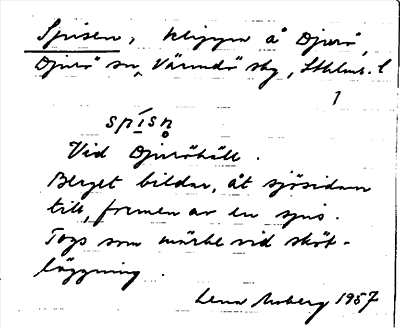 Spisen, klippa å Djurö,
Djurö sn, Värmdö skg, Sthlms. l
spísn̥
Vid Djuröhäll.
Berget bildar, åt sjösidan
till, formen av en spis.
Togs som märke vid sköt-
läggning.
Lena Moberg 1957